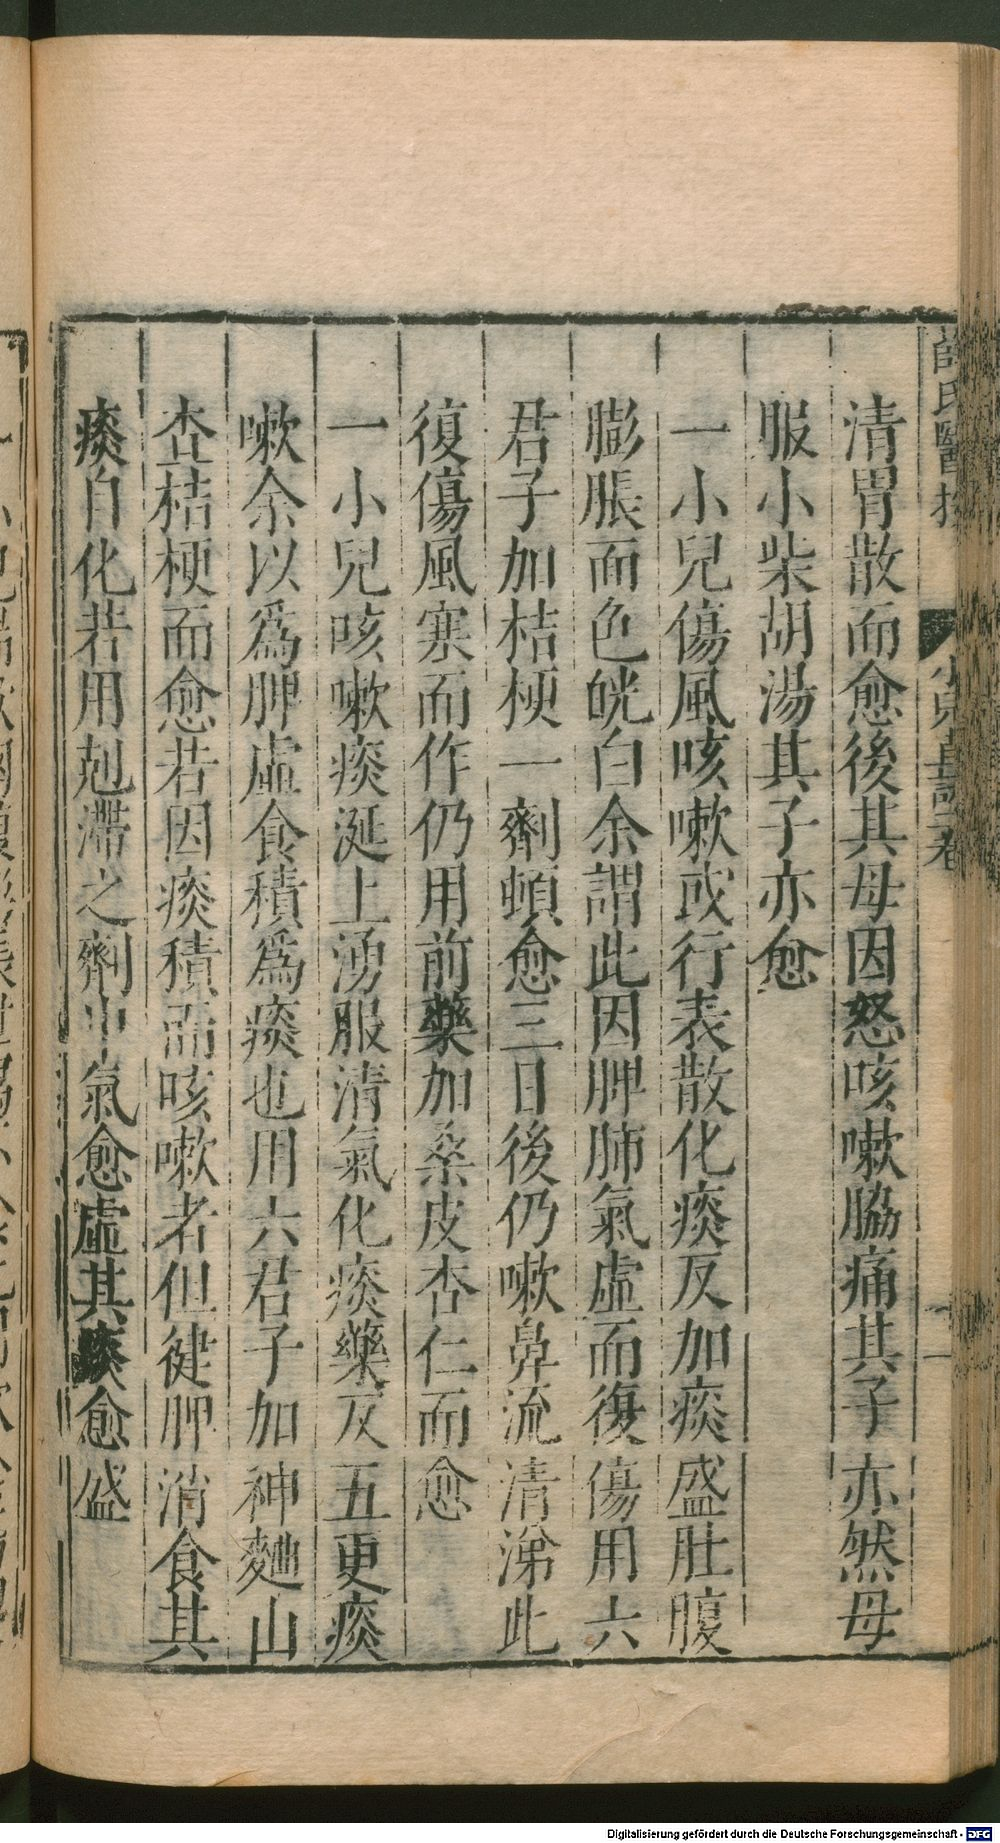 清胃散而愈後其母因怒咳嗽脇痛其子亦然母
服小柴胡湯其子亦愈
一小兒傷風咳嗽或行表散化痰反加痰盛肚腹
膨脹面色㿠白余謂此因脾肺氣虛而復傷用六
君子加桔梗一劑頓愈三日後仍嗽鼻流清涕此
復傷風寒而作仍用前藥加桑皮杏仁而愈
一小兒咳嗽痰涎上湧服清氣化痰藥反五更痰
嗽余以爲脾虛食積爲痰也用六君子加神麯山
查桔梗而愈若因痰積而咳嗽者但健脾消食其
痰自化若用剋滯之劑中氣愈虛其痰愈盛
Digitalisierung gefördert durch die Deutsche Forschungsgemeinschaft - DFG